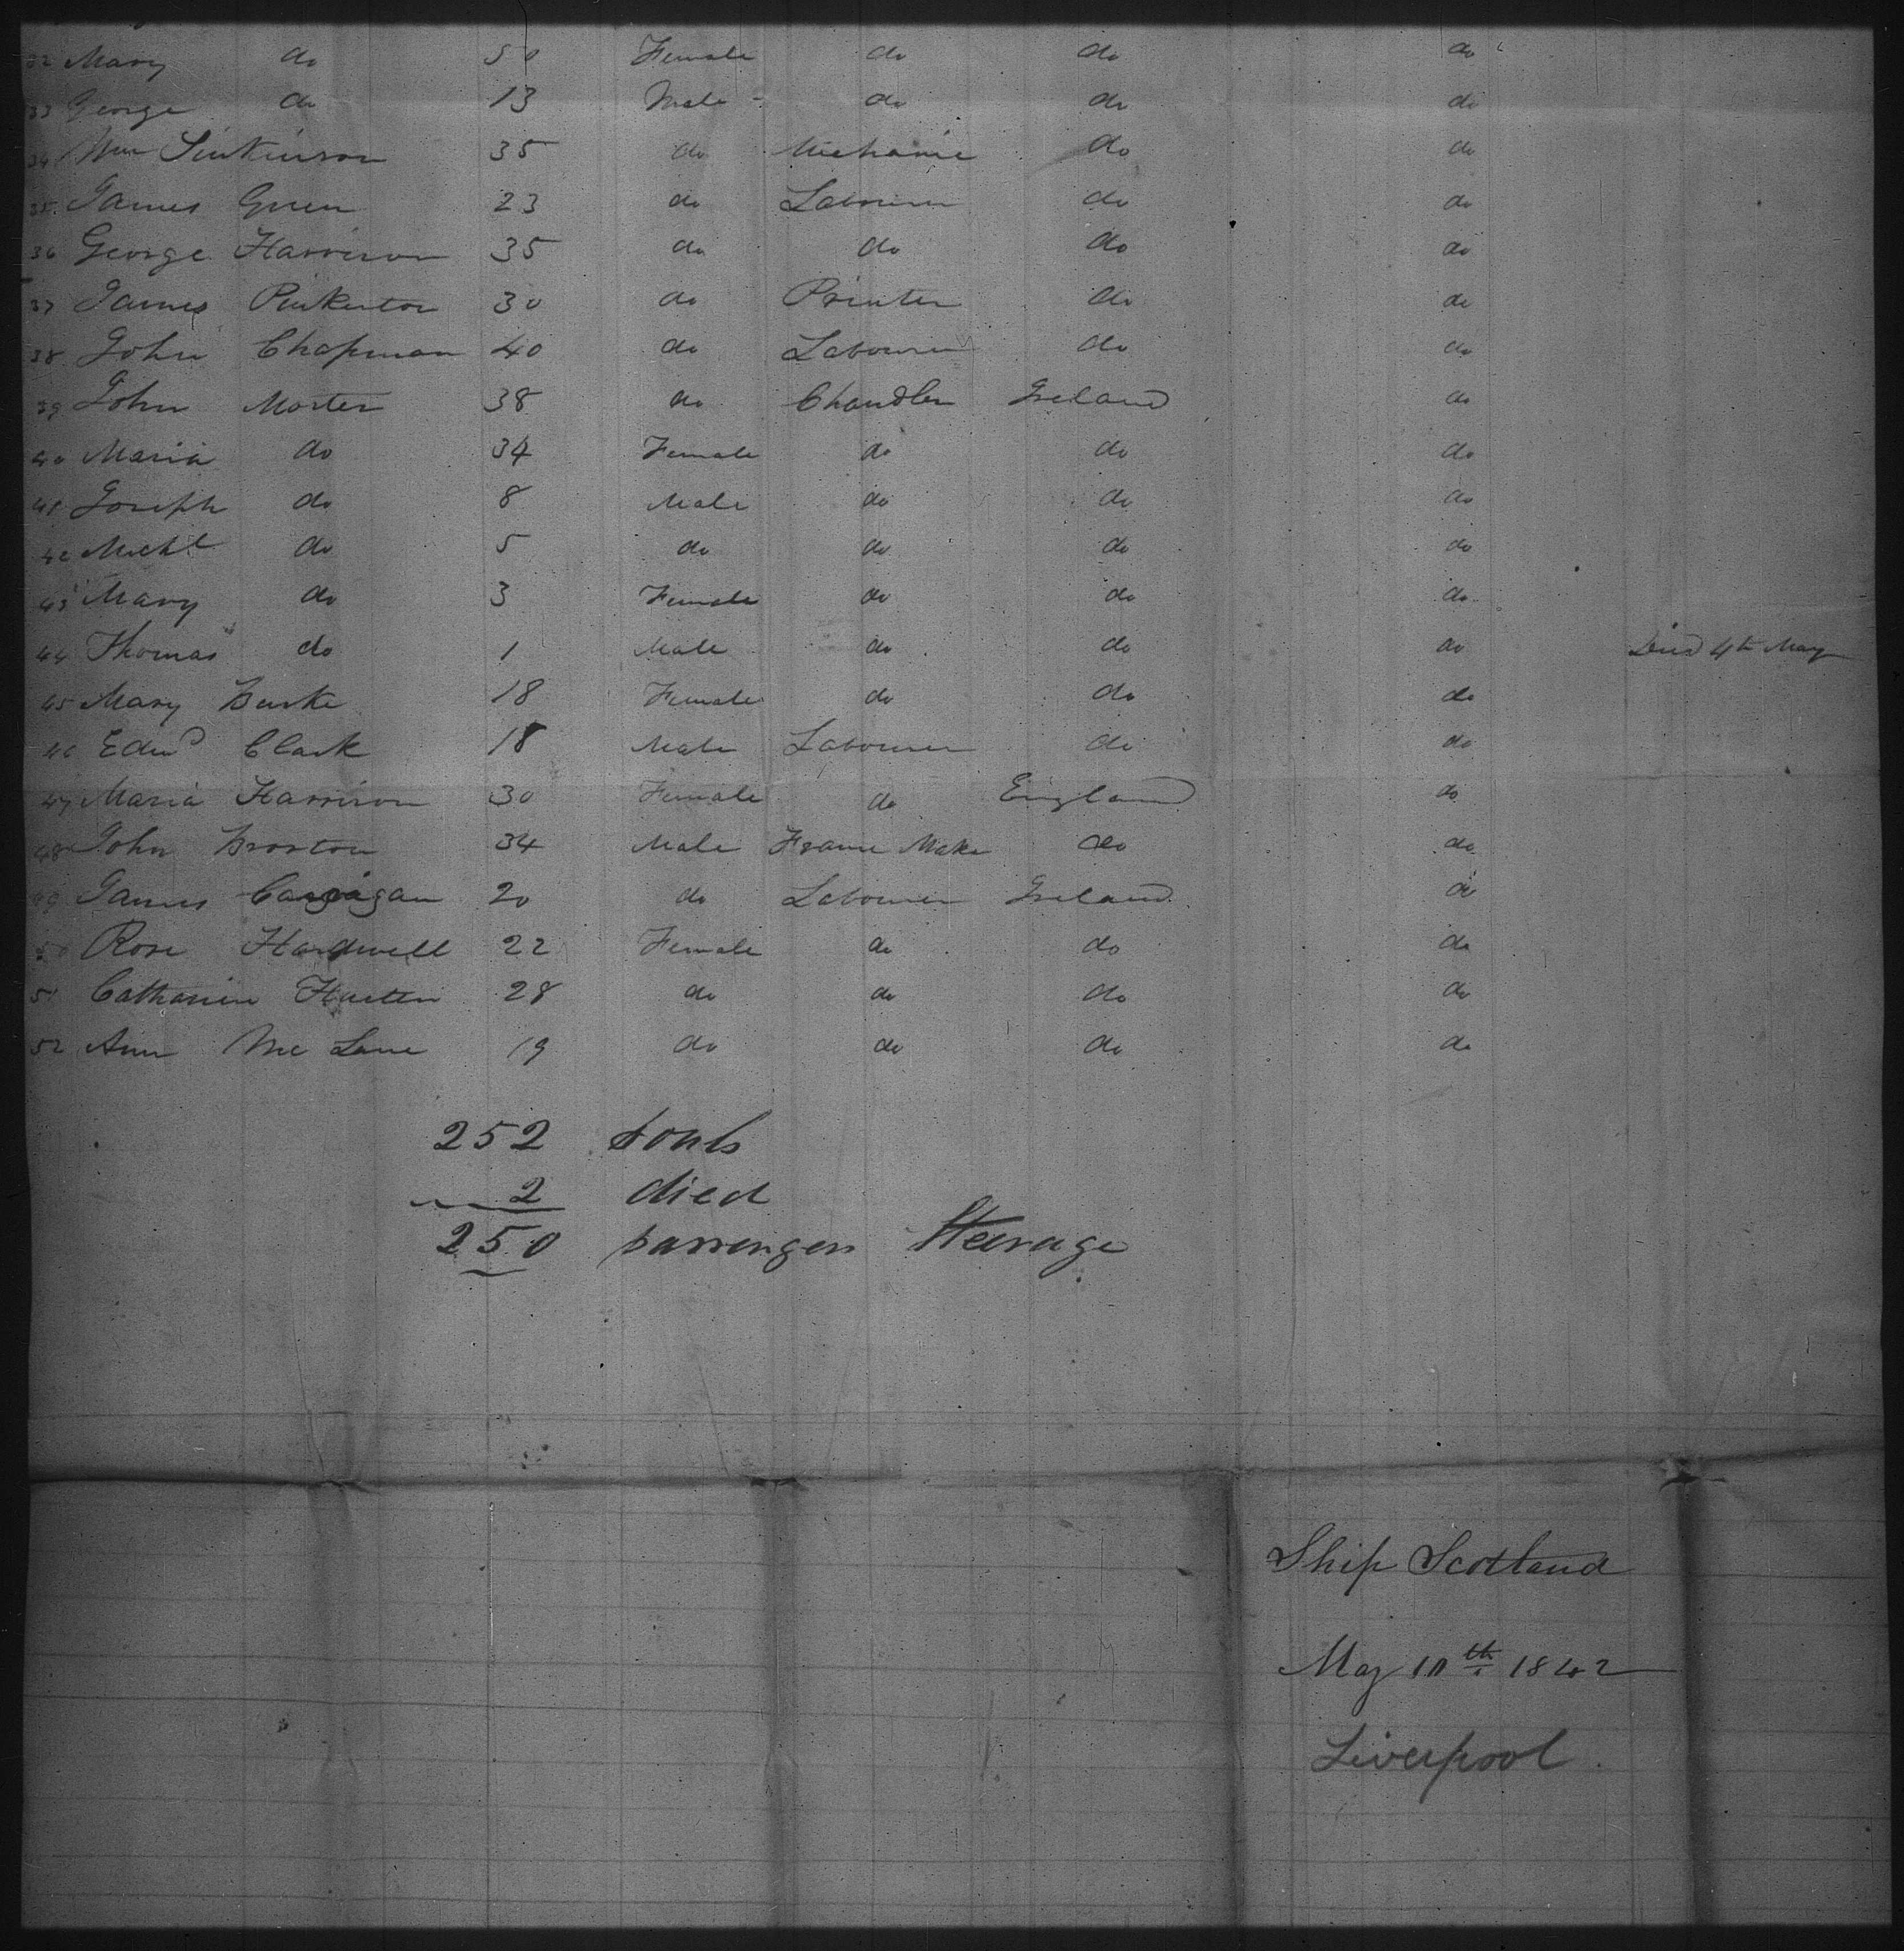 32 Mary do 50 Female do do do
33 George do 13 Male do do do
34 Wm Sinkinson 35 do Mechanic do do
35 James Green 23 do Labourer do do
36 George Harrison 35 do do do do
37 James Pinkerton 30 do Printer do do
38 John Chapman 40 do Labourer do do
39 John Morter 38 do Chandler Ireland do
40 Maria do 34 Female do do do
41 Joseph do 8 Male do do do
42 Michl do 5 do do do do
43 Mary do 3 Female do do do
44 Thomas do 1 Male do do do Died 4th May
45 Mary Burke 18 Female do do do
46 Edwd Clark 18 Male Labourer do do
47 Maria Harrison 30 Female do England do
48 John Broxton 34 Male Frame Make do do
49 James 20 do Labourer Ireland do
50 Rose Hardwell 22 Female do do do
51 Catharine 28 do do do do
52 Ann Mc Lane 19 do do do do
252 souls
2 died
250 passengers Steerage
Ship Scotland
May 10th 1842
Liverpool